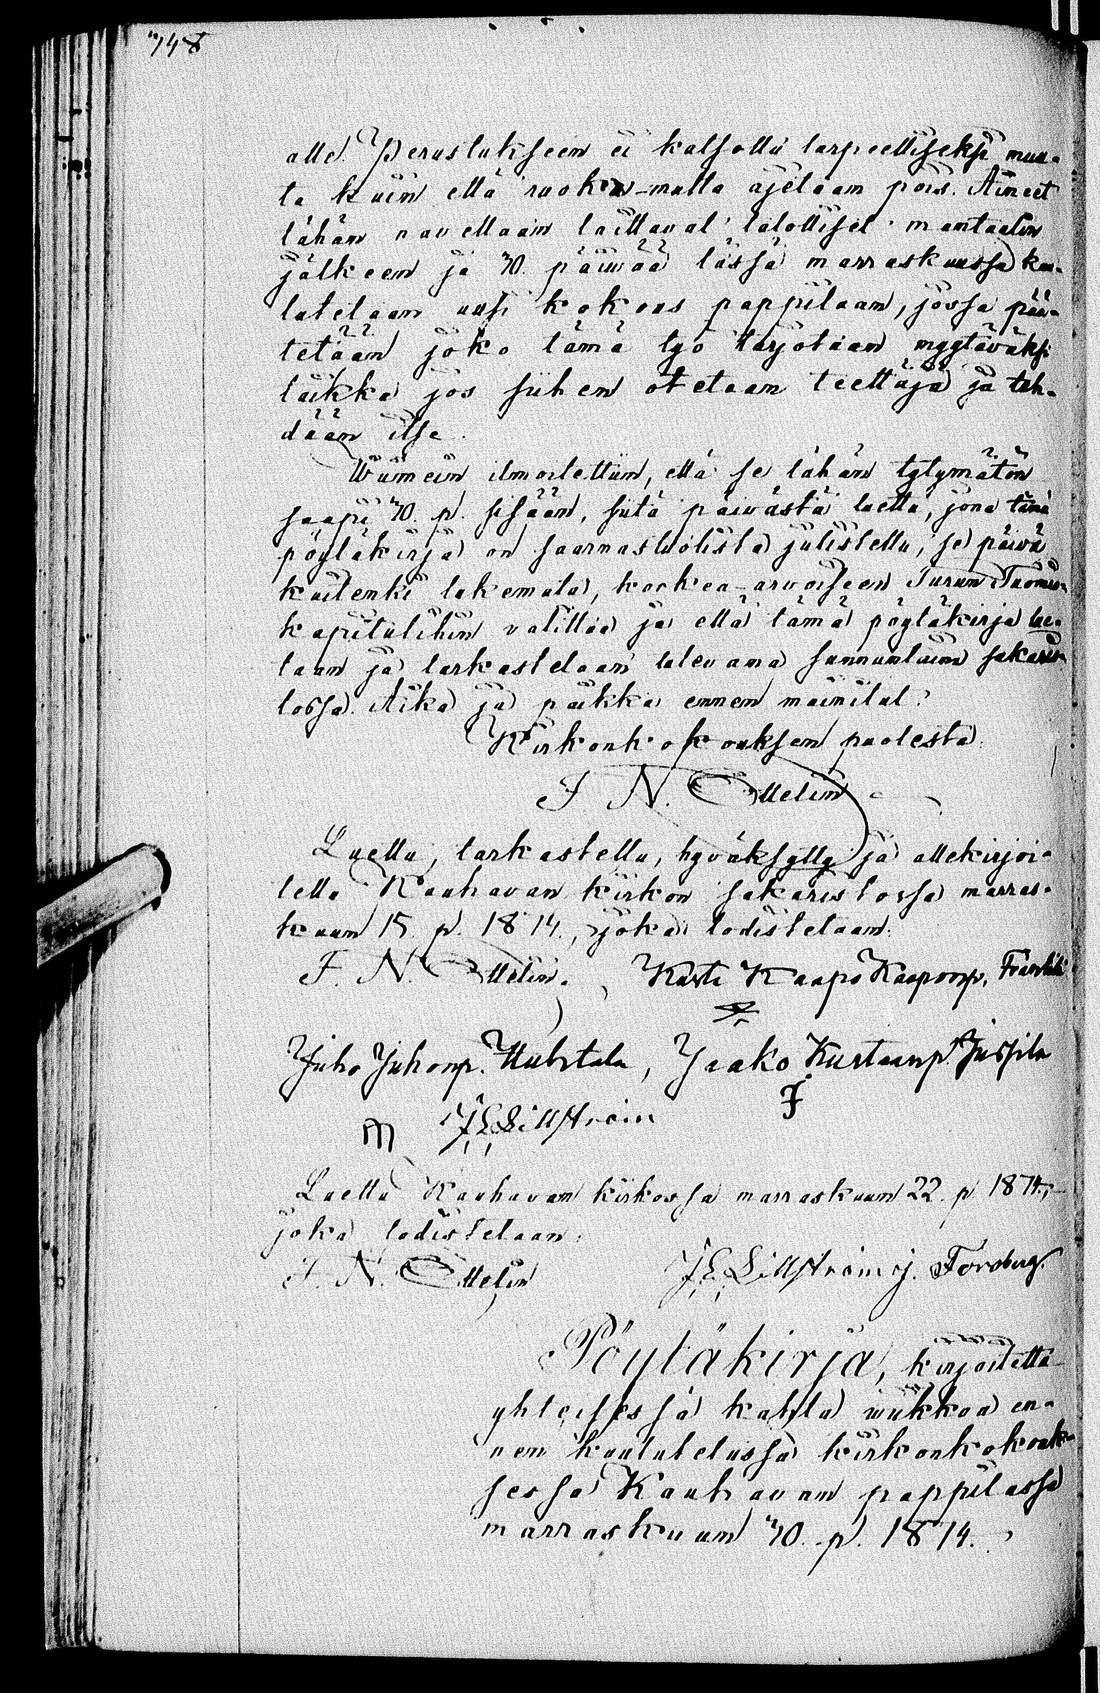 748
alle. Perustukseen ei katsottu tarpeelliseksi muu-
ta kuin että ruoka-multa ajetaan pois. Aineet
tähän navettaan laittavat talolliset mantaalin
jälkeen ja 30 päivää tässä marraskuussa kuu-
lutetaan uusi kokous pappilaan, jossa pää-
tetään joko tämä työ tarjotaan myytäväksi
taikka jos siihen otetaan teettäjä ja teh-
dään itse.
Wiimein ilmoitettiin, että se tähän tytymätön
saapi 30 p. sisään, siitä päivästä luettu, jona tämä
pöytäkirja on saarnastuolista julistettu, se päivä
kuitenki lukemata, korkea-arvoiseen Turun Tuomio-
kapitulihin valittaa ja että tämä pöytäkirja lue-
taan ja tarkastetaan tulevana sunnuntaina sakaris-
tossa. Aika ja paikka ennen mainitut.
Kirkonkokouksen puolesta:
F N. Ottelin
Luettu, tarkastettu, hyväksytty ja allekirjoi-
tettu Kauhavan kirkon sakaristossa marras-
kuun 15 p. 1874, joka todistetaan:
F. N. Ottelin. Kusti Kaapo Kaaponp.
Juho Juhonp. Huhtala, Jaako Kustaanp. Jussila
J E Lillström
Luettu Kauhavan kirkossa marraskuun 22 p 1874,
joka todistetaan:
F. N. Ottelin J E Lillström j. Forsberg.
Pöytäkirja, kirjoitettu
yhteisessä kahta wiikkoa en-
nen kuulutetussa kirkonkokouk-
sessa Kauhavan pappilassa
marraskuun 30 p. 1874.